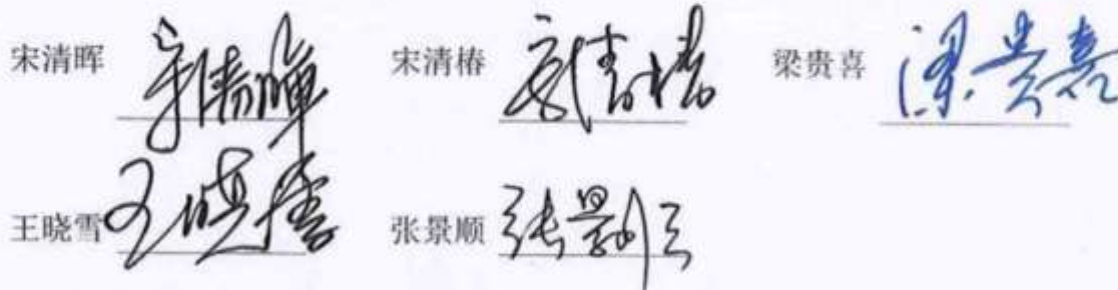 宋清晖 宋清晖 宋清椿 宋清椿 梁贵喜 梁贵喜
王晓雪 王晓雪 张景顺 张景顺